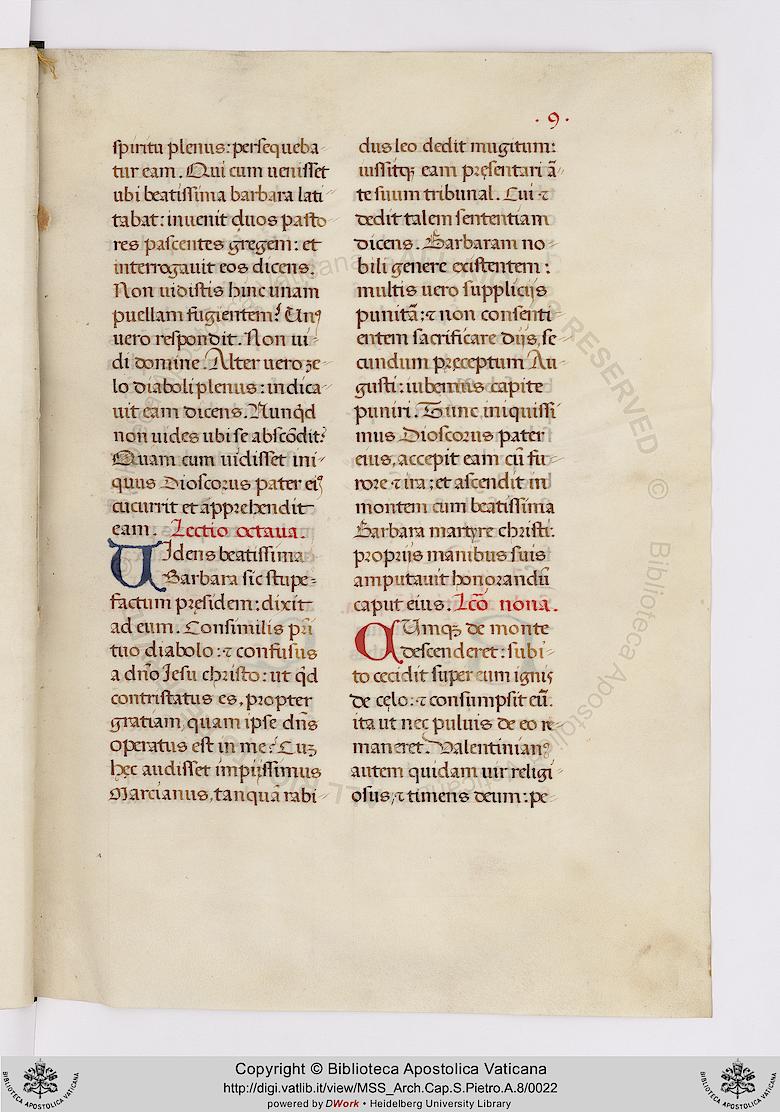 · 9 ·
spiritu plenus: persequeba-
tur eam. Qui cum uenisset
ubi beatissima barbara lati
tabat: inuenit duos pasto
res pascentes gregem: et
interrogauit eos dicens.
Non uidistis hinc unam
puellam fugientem? Unꝰ
uero respondit. Non ui-
di domine. Alter uero ze-
lo diaboli plenus: indica-
uit eam dicens. Nunqd̄
non uides ubi se abscōdit?
Quam cum uidisset ini-
quus Dioscorus pater eiꝰ
cucurrit et apprehendit
eam. Lectio octaua.
UIdens beatissima
Barbara sic stupe-
factum pręsidem: dixit
ad eum. Consimilis pri
tuo diabolo: ⁊ confusus
a dn̄o Jesu christo: ut qd̄
contristatus es, propter
gratiam, quam ipse dn̄s
operatus est in me: Cuꝫ
hęc audisset impijssimus
Marcianus, tanquā rabi-
dus leo dedit mugitum:
iussitqꝫ eam pręsentari ā-
te suum tribunal. Cui ⁊
dedit talem sententiam
dicens. Barbaram no-
bili genere existentem:
multis uero supplicijs
punitā: ⁊ non consenti-
entem sacrificare dijs, se
cundum pręceptum Au-
gusti: iubemus capite
puniri. Tunc iniquissi
mus Dioscorus pater
eius, accepit eam cū fu-
rore ⁊ ira; et ascendit in
montem cum beatissima
Barbara martyre christi:
proprijs manibus suis
amputauit honorandū
caput eius. Lcō nona.
CUmqꝫ de monte
descenderet: subi-
to cecidit super eum ignis
de cęlo: ⁊ consumpsit eū.
ita ut nec puluis de eo re-
maneret. Valentinianꝰ
autem quidam uir religi-
osus, ⁊ timens deum: pe-
Copyright © Biblioteca Apostolica Vaticana
http://digi.vatlib.it/view/MSS_Arch.Cap.S.Pietro.A.8/0022
powered by DWork • Heidelberg University Library